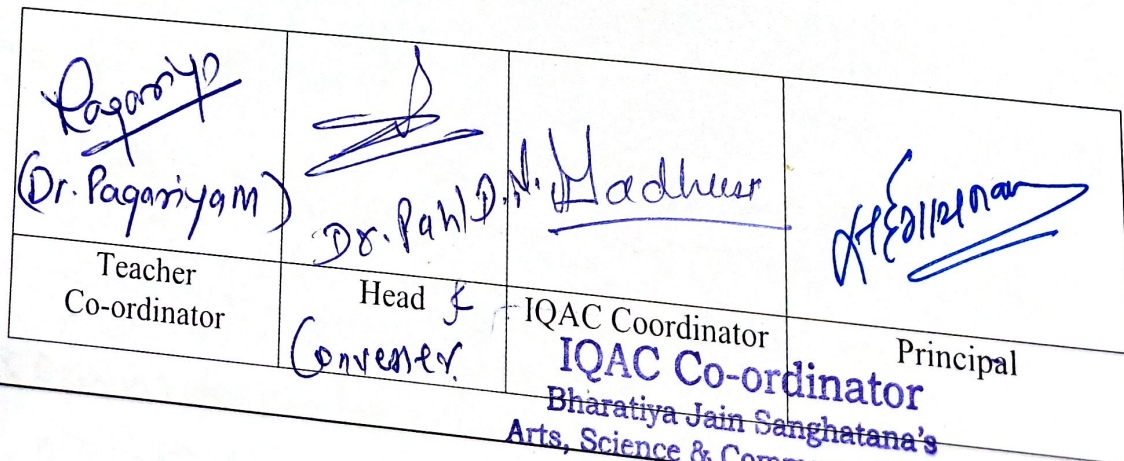 Pagariya
(Dr. Pagariya M)
Dr. Patil D. N.
Madhusr
Teacher
Co-ordinator
Head &
Convener.
IQAC Coordinator
Principal
IQAC Co-ordinator
Bharatiya Jain Sanghatana's
Arts, Science &